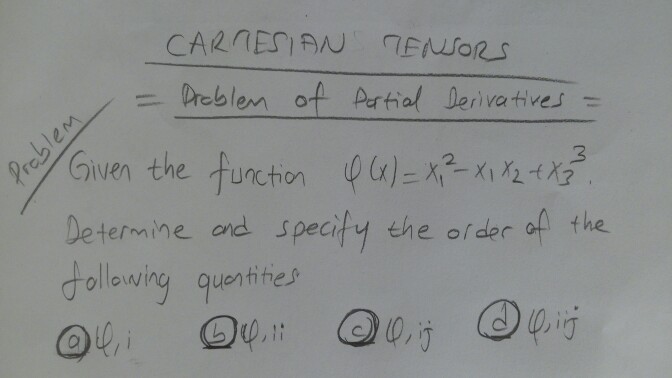 CARTESIAN TENSORS
= Problem of Partial Derivatives =
Problem
Given the function φ(x) = x₁² - x₁ x₂ + x₃³.
Determine and specify the order of the
following quantities
(a) φ,i (b) φ,ii (c) φ,ij (d) φ,iij